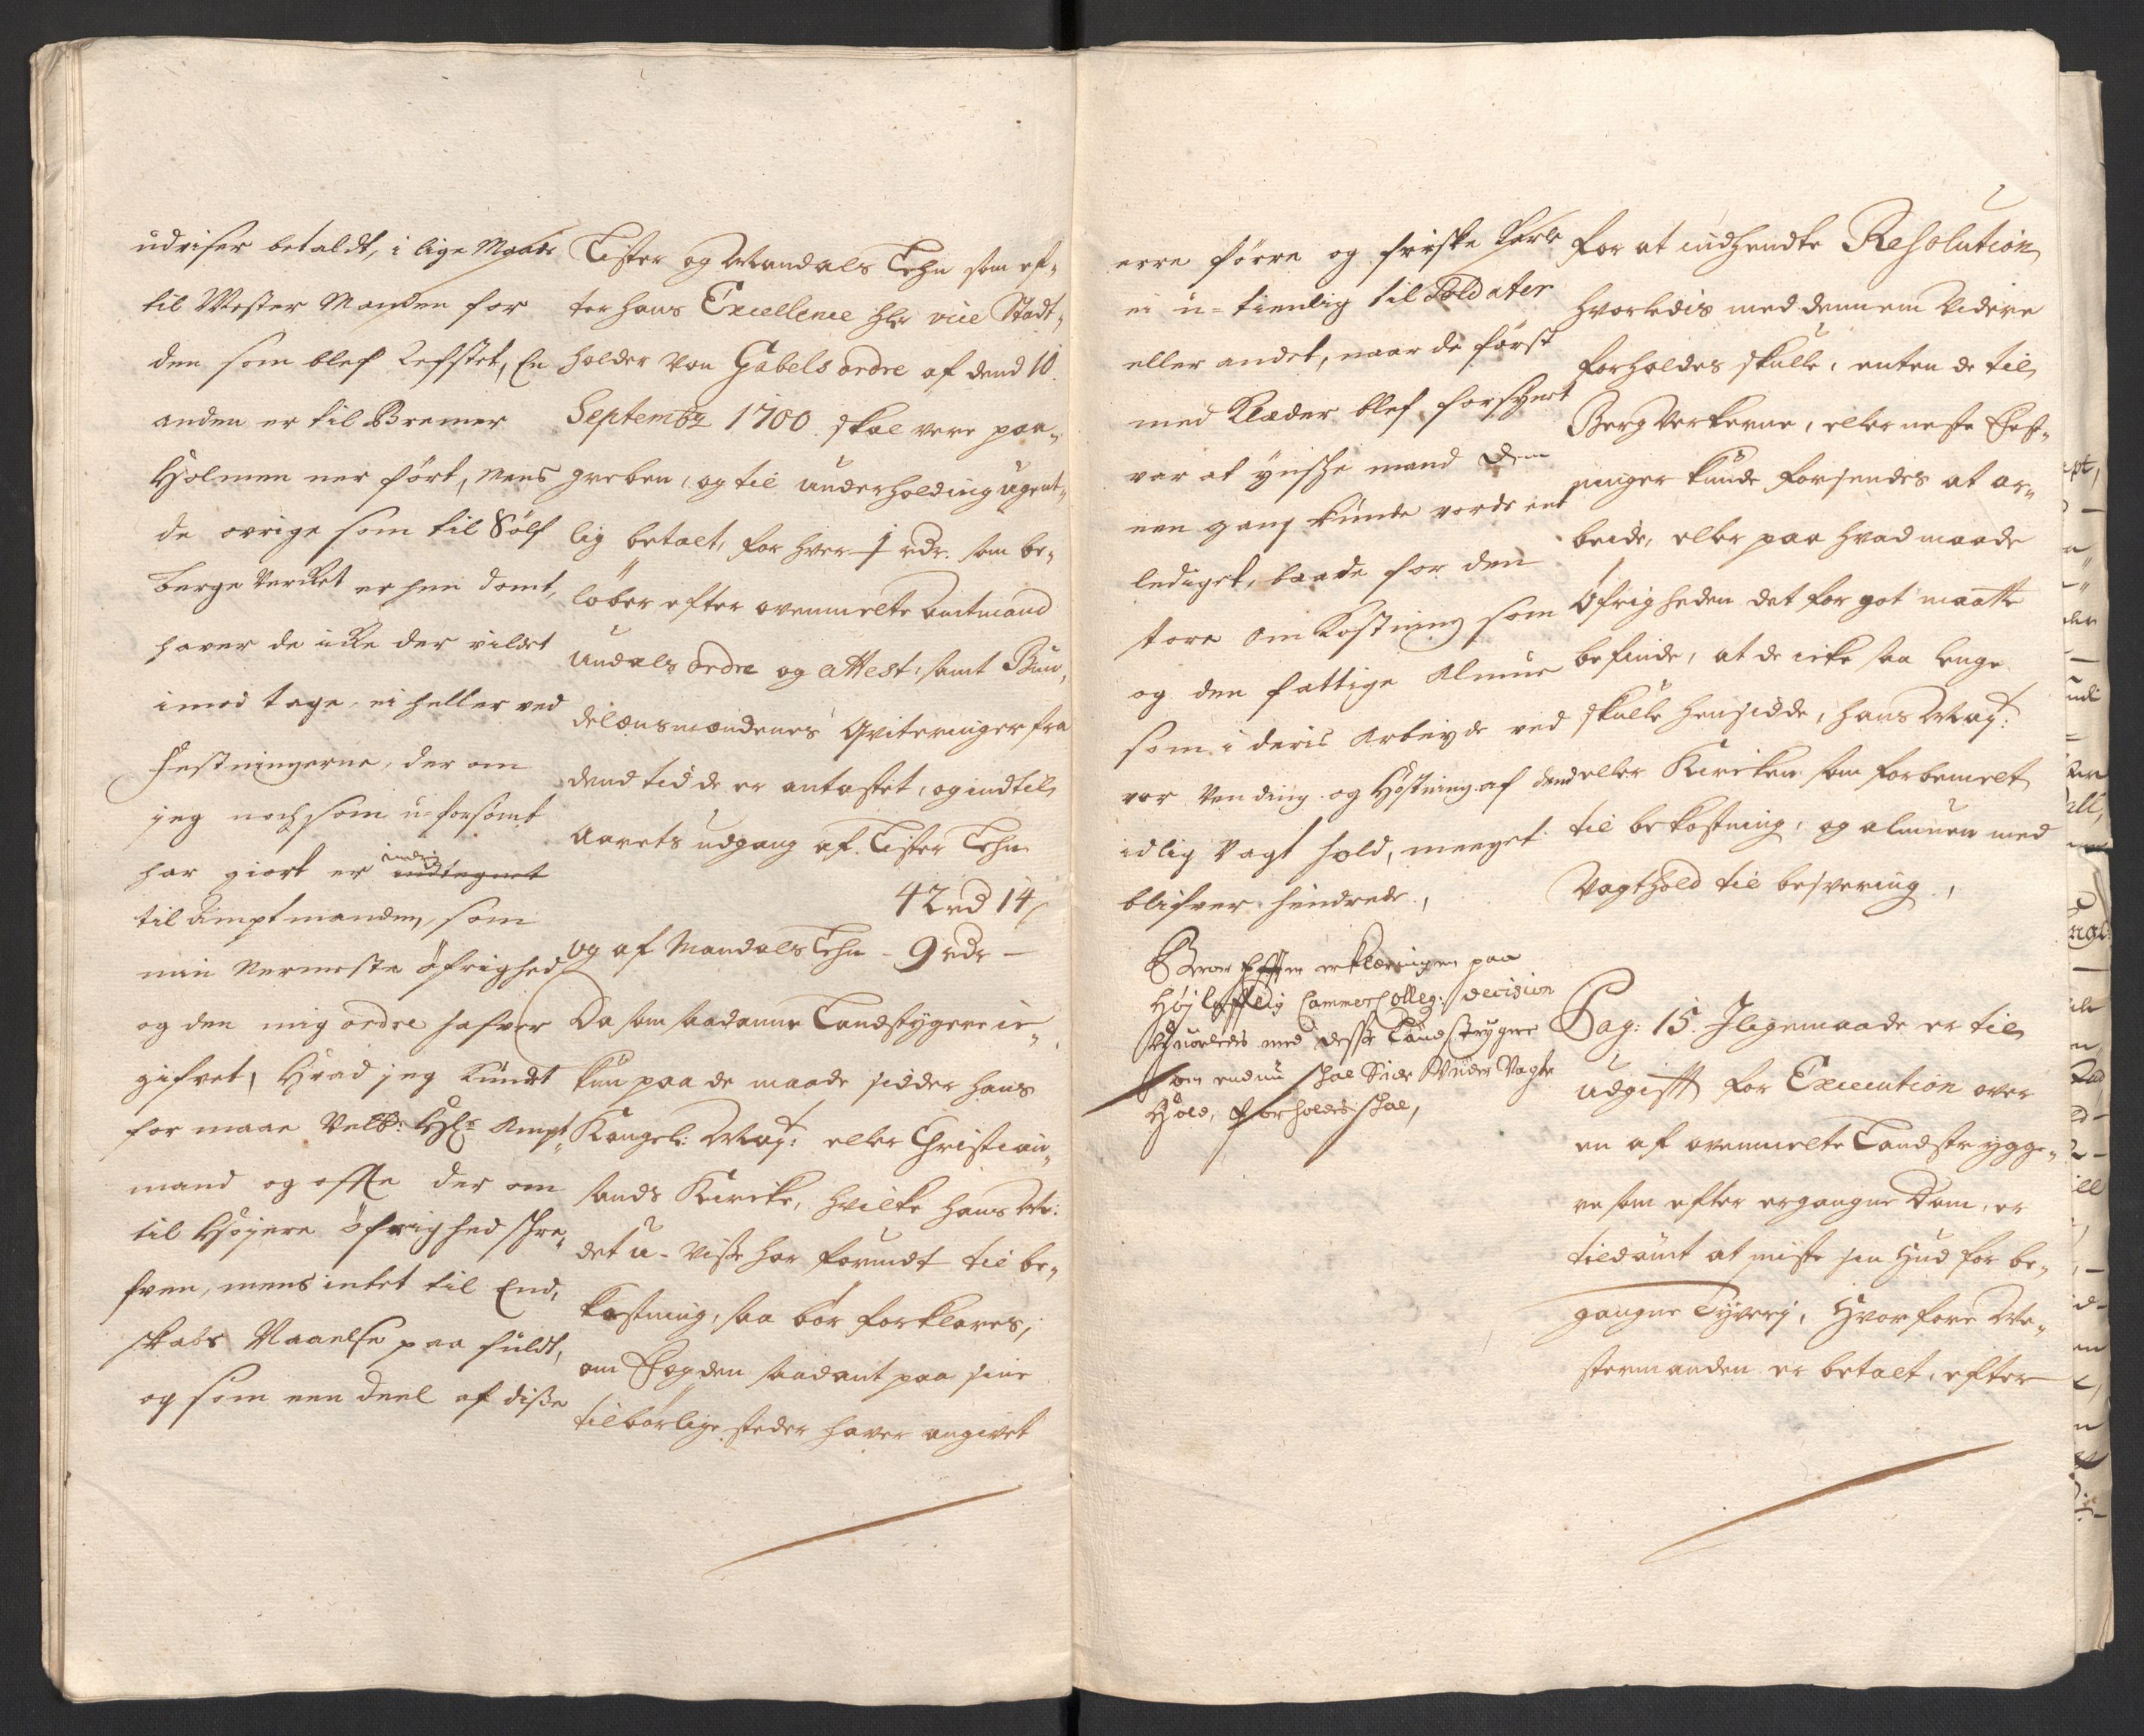 udviser betaldt, i lige Maade
til Mester Manden for
den som blef Refstet, En
anden er til Bremer
Holmen ner ført, Mens
de ovrige som til Sølf
berge Verket er hen domt,
haver de icke der vildet
imod tage, ei heller ved
Festningerne, der om
jeg noch som u-forsømt
har giort er indtegnet
til Amptmanden, som
min Nermeste øfrighed
og den mig ordre hafver
gifvet, Hvad jeg kundt
for maae Velb: Hr: Ampt„
mand og offte der om
til Høyere øfrighed schre„
fven, mens intet til End,
skabs Naaelse paa fuldt,
og som een deel af disse
Lister og Mandals Lehn som ef„
ter hans Excellence Hr vice Stadt„
holder von Gabels ordre af dend 10.
Septembr 1700. skal vere paa„
greben, og til underholding ugent„
lig betalt, for hver 1 rdr. som be„
løber efter ovenmelte Amtmand
Undals ordre og attest, samt Bun„
delensmændenes Qviteringer fra
dend tid de er antastet, og indtil
Aarets udgang af Lister Lehn
42 rd 14 ß
og af Mandals Lehn - 9 rdr -
Da som saadanne Landstygere ie„
kun paa de maade sidder hans
Kongel: May: eller Christian„
sands Kircke, hvilke hans M:
det u-visse har forundt til be„
kostning, saa bør forklares,
om Fogden saadant paa sine
tilbørlige steder haver angivet
erre større og friske Karle
ei u-tienlig til Soldater
eller andet, naar de først
med Klæder blef forsynet
var at ynsche mand dem
een gang kunde vorde ent
lediget, baade for den
store omkostning som
og den fattige Almue
som i deris Arbeyde ved
vor Vending og Høstning af dend
idlig Vagt hold, meeget
blifver hindrede,
Beroer Efter erklæringen paa
Høy lofflig Cammer Colleg: decision
Hvorledis med disse Landstrygere
som endnu schal Side Under Vagte
Hold, forholdes schal,
for at indhendte Resolution
hvorledis med dennem videre
forholdes skulle, enten de til
Berg Verkerne, eller neste Fest„
ninger kunde forsendes at ar„
beide, eller paa hvad maade
Øfrigheden det for got maatte
befinde, at de icke saa lenge
skulle hensidde, hans May:
eller Kircken som forbemelt
til bekostning, og almuen med
Vagthold til besvering,
Pag: 15. Iligemaade er til
udgift for Execution over
en af ovenmelte Landstrygge„
re som efter ergangne Dom, er
tildømt at miste sin Hud for be„
gangne Tyverj, Hvorfore Me„
stermanden er betalt, efter